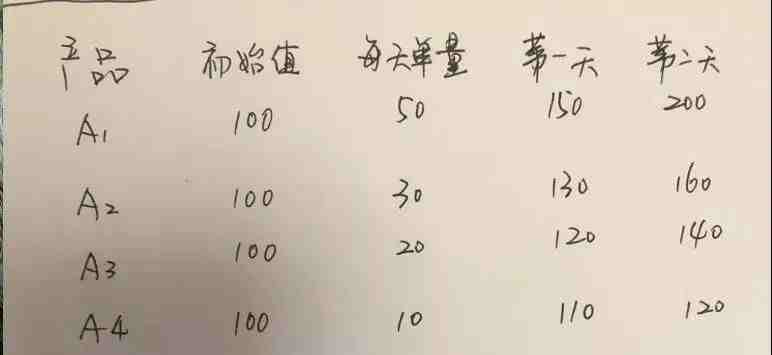 产品 初始值 每天单量 第一天 第二天
A1 100 50 150 200
A2 100 30 130 160
A3 100 20 120 140
A4 100 10 110 120